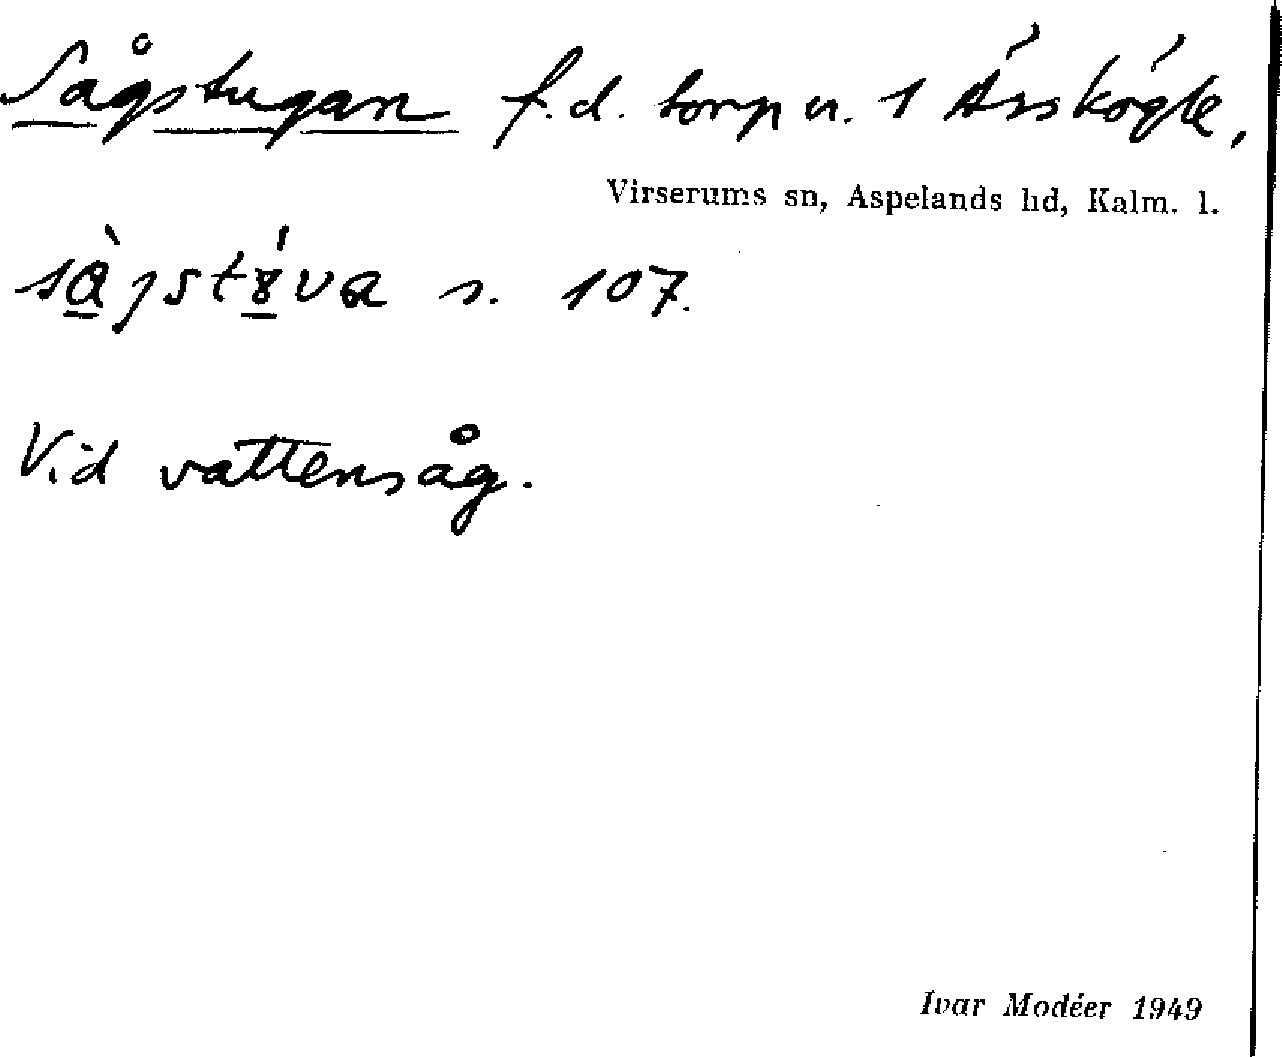 Sågstugan f.d. torp u. 1 Ässkögle,
Virserums sn, Aspelands hd, Kalm. l.
s. 107.
Vid vattensåg.
Ivar Modéer 1949